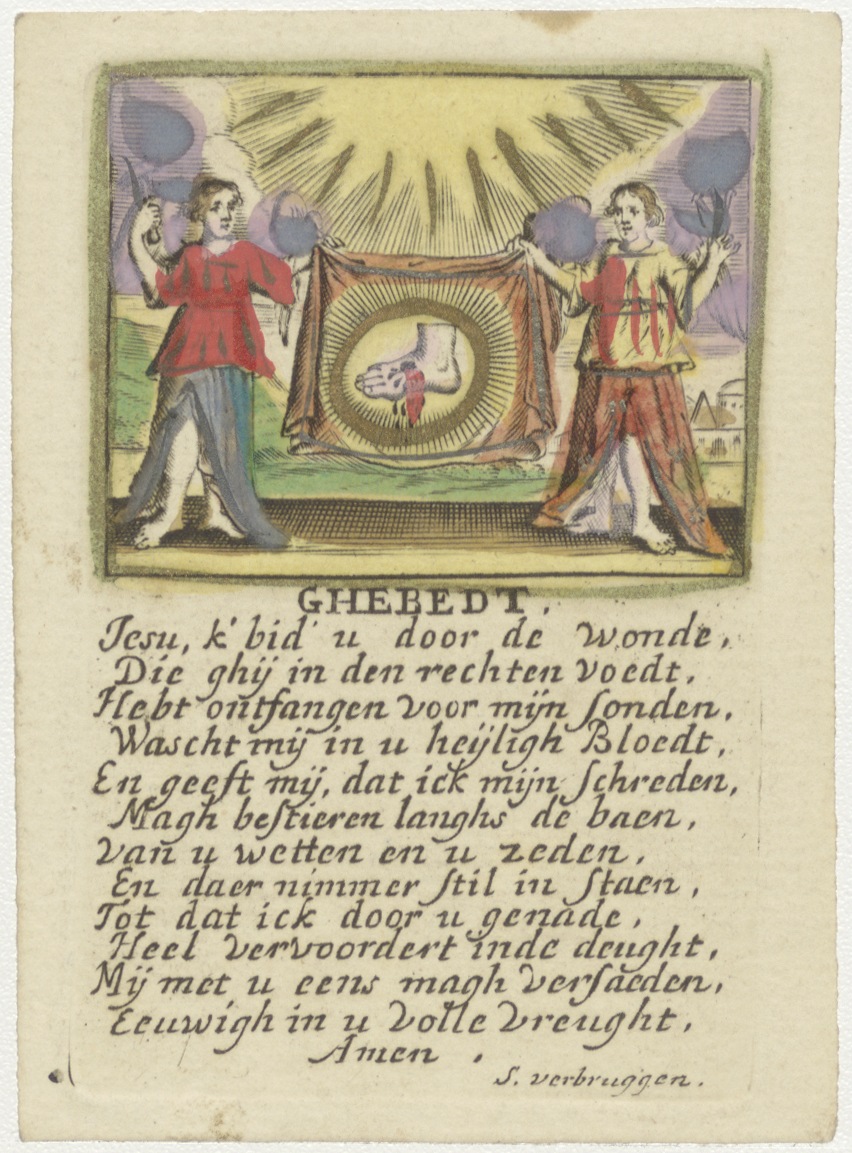 GHEBEDT.
Jesu, k' bid u door de wonde,
Die ghij in den rechten voedt,
Hebt ontfangen voor mijn sonden,
Wascht mij in u heijligh Bloedt,
En geeft mij, dat ick mijn schreden,
Magh bestieren langhs de baen,
Van u wetten en u zeden,
En daer nimmer stil in staen,
Tot dat ick door u genade,
Heel vervoordert inde deught,
Mij met u eens magh versaeden,
Eeuwigh in u volle vreught,
Amen.
S. verbruggen.